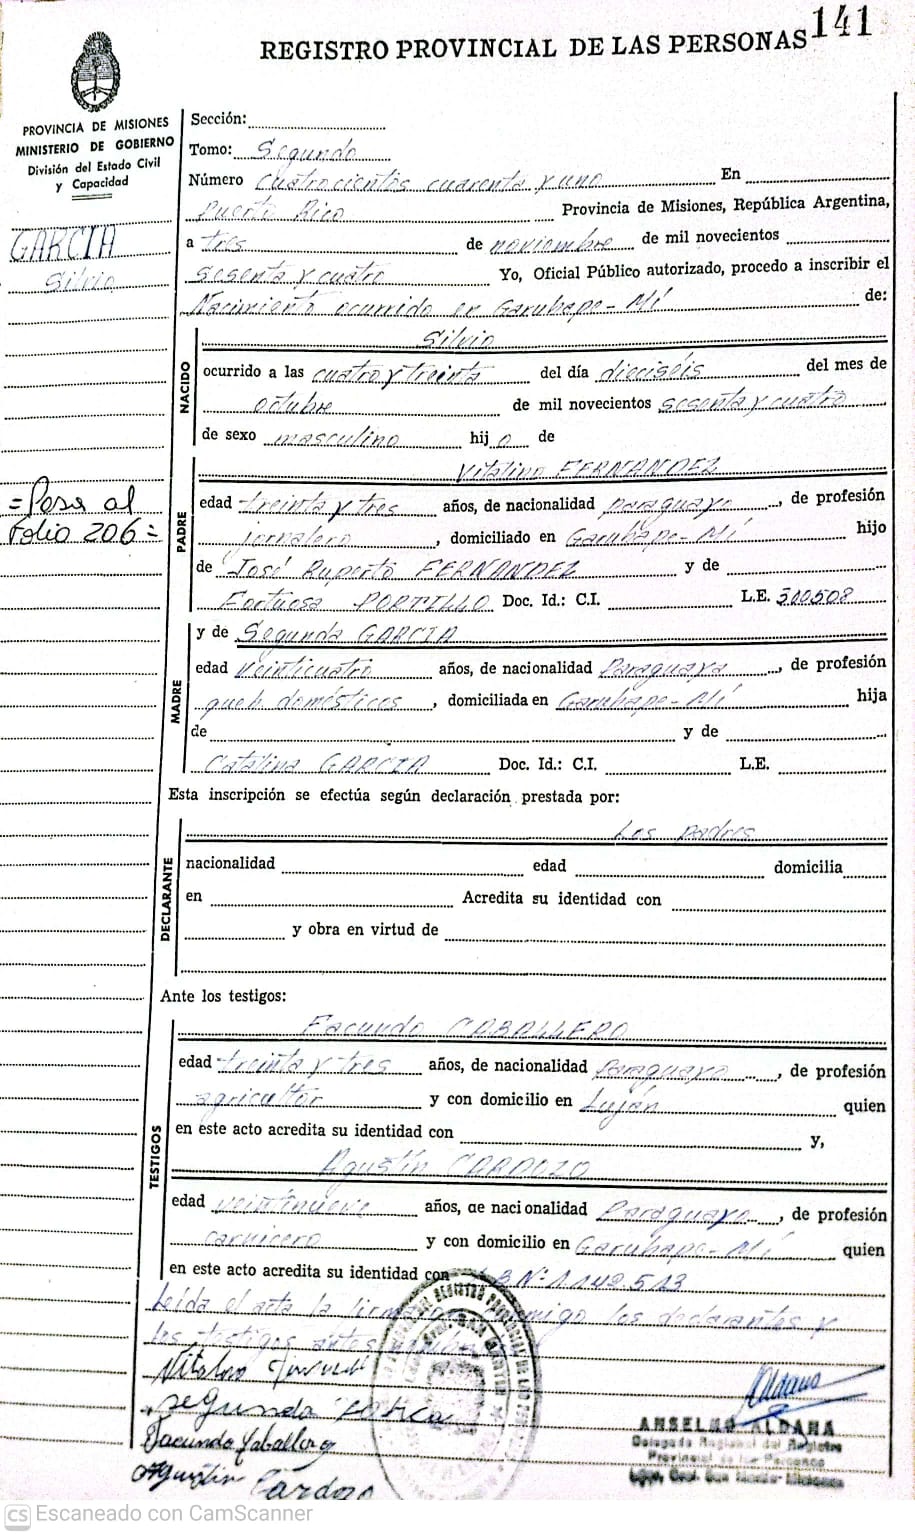 141
REGISTRO PROVINCIAL DE LAS PERSONAS
PROVINCIA DE MISIONES
MINISTERIO DE GOBIERNO
División del Estado Civil
y Capacidad
GARCIA
Silvio
=Pasa al
Folio 206=
Sección:
Tomo: Segundo
Número Cuatrocientos cuarenta y uno En
Puerto Rico Provincia de Misiones, República Argentina,
a tres de noviembre de mil novecientos
sesenta y cuatro Yo, Oficial Público autorizado, procedo a inscribir el
Nacimiento ocurrido en Garuhape-Mí de:
NACIDO
Silvio
ocurrido a las cuatro y treinta del día dieciséis del mes de
octubre de mil novecientos sesenta y cuatro
de sexo masculino hijo de
PADRE
Vitalino FERNANDEZ
edad treinta y tres años, de nacionalidad paraguayo, de profesión
jornalero, domiciliado en Garuhape-Mí hijo
de José Ruperto FERNANDEZ y de
Fortuosa PORTILLO Doc. Id.: C.I. L.E. 300508
MADRE
y de Segunda GARCIA
edad veinticuatro años, de nacionalidad Paraguaya, de profesión
queh. domésticos, domiciliada en Garuhape-Mí hija
de y de
Catalina GARCIA Doc. Id.: C.I. L.E.
Esta inscripción se efectúa según declaración prestada por:
DECLARANTE
Los padres
nacionalidad edad domicilia
en Acredita su identidad con
y obra en virtud de
Ante los testigos:
TESTIGOS
Facundo CABALLERO
edad treinta y tres años, de nacionalidad Paraguayo, de profesión
agricultor y con domicilio en Luján quien
en este acto acredita su identidad con y,
Agustín CARDOZO
edad veintinueve años, de nacionalidad Paraguayo, de profesión
carnicero y con domicilio en Garuhape-Mí quien
en este acto acredita su identidad con Nº 1.142.513
Leída el acta la firman conmigo los declarantes y
los testigos antes
Segunda
Facundo Caballero
Agustín Cardozo
Aldana
ANSELMO ALDANA
Delegado Regional del Registro
Provincial de las Personas
CS Escaneado con CamScanner